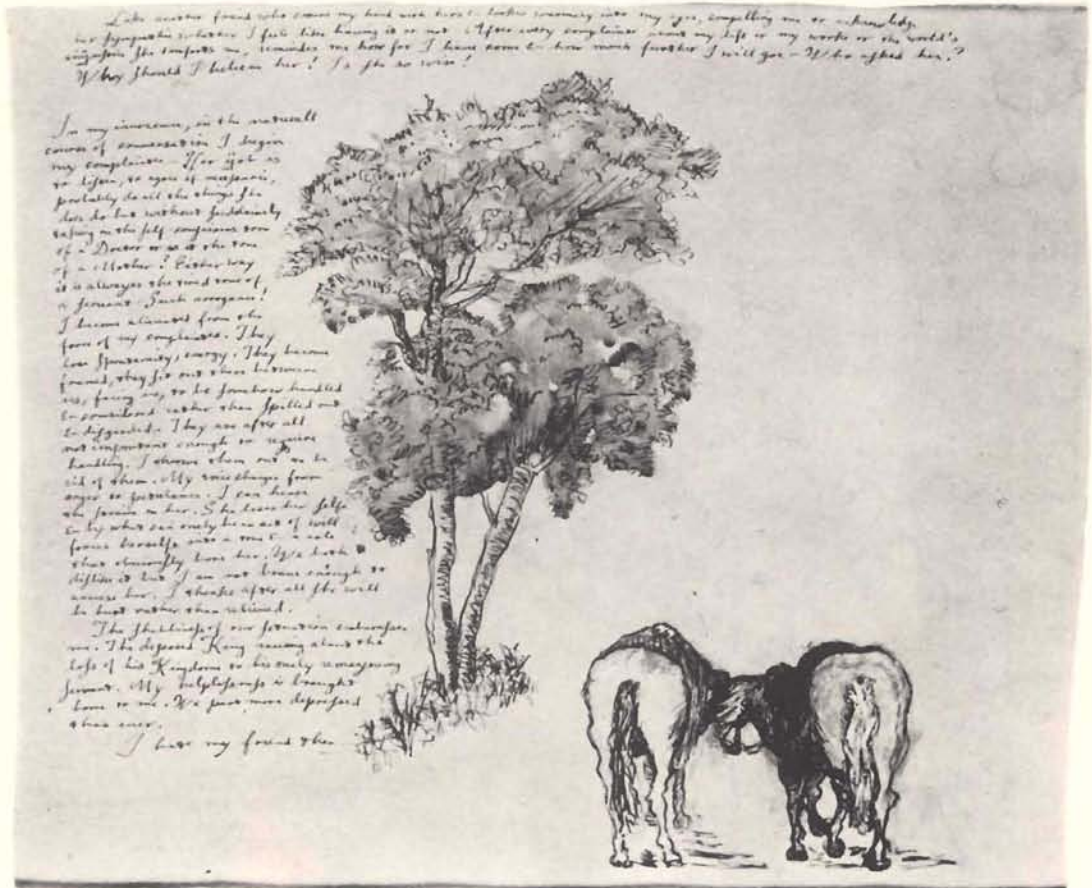 Like another friend who covers my hand with hers & looks warmly into my eyes, compelling me to acknowledge
her sympathie whether I feel like having it or not. After every complainte about my life or my works or the world's
She comforts me, reminds me how far I have come & how much further I will goe – Who asked her?
Why should I beleeve her! Is she so wise!
In my innocence, in the naturall
course of conversation I begin
my complainte – Her job is
to listen, to agree if necessarie,
probably do all the things she
does do but without suddainely
taking on the self conscious tone
of a Doctor or is it the tone
of a Mother? Either way
it is alwayes the tone of
a servant. Such arrogance!
I become alienated from the
form of my complaintes. They
lose spontaneity, energy. They become
formed, they sit out there between
us, facing us, to be somehow handled
& considered rather than spilled out
& disgarded. They are after all
not important enough to require
handling. I throwe them out to be
rid of them. My voice changes from
anger to petulance. I can heare
the strain in her. She
& by what can onely be an act of will
forces herselfe into a tone & a role
that obviously bore her. We both
dislike it but I am not brave enough to
accuse her. I thinke after all she will
be hurt rather than relieved.
The of our situation embarrasses
me. The deposed King raving about the
loss of his Kingdom to his onely remayning
servant. My helplessness is brought
home to me. We part more depressed
than ever.
I hate my friend then